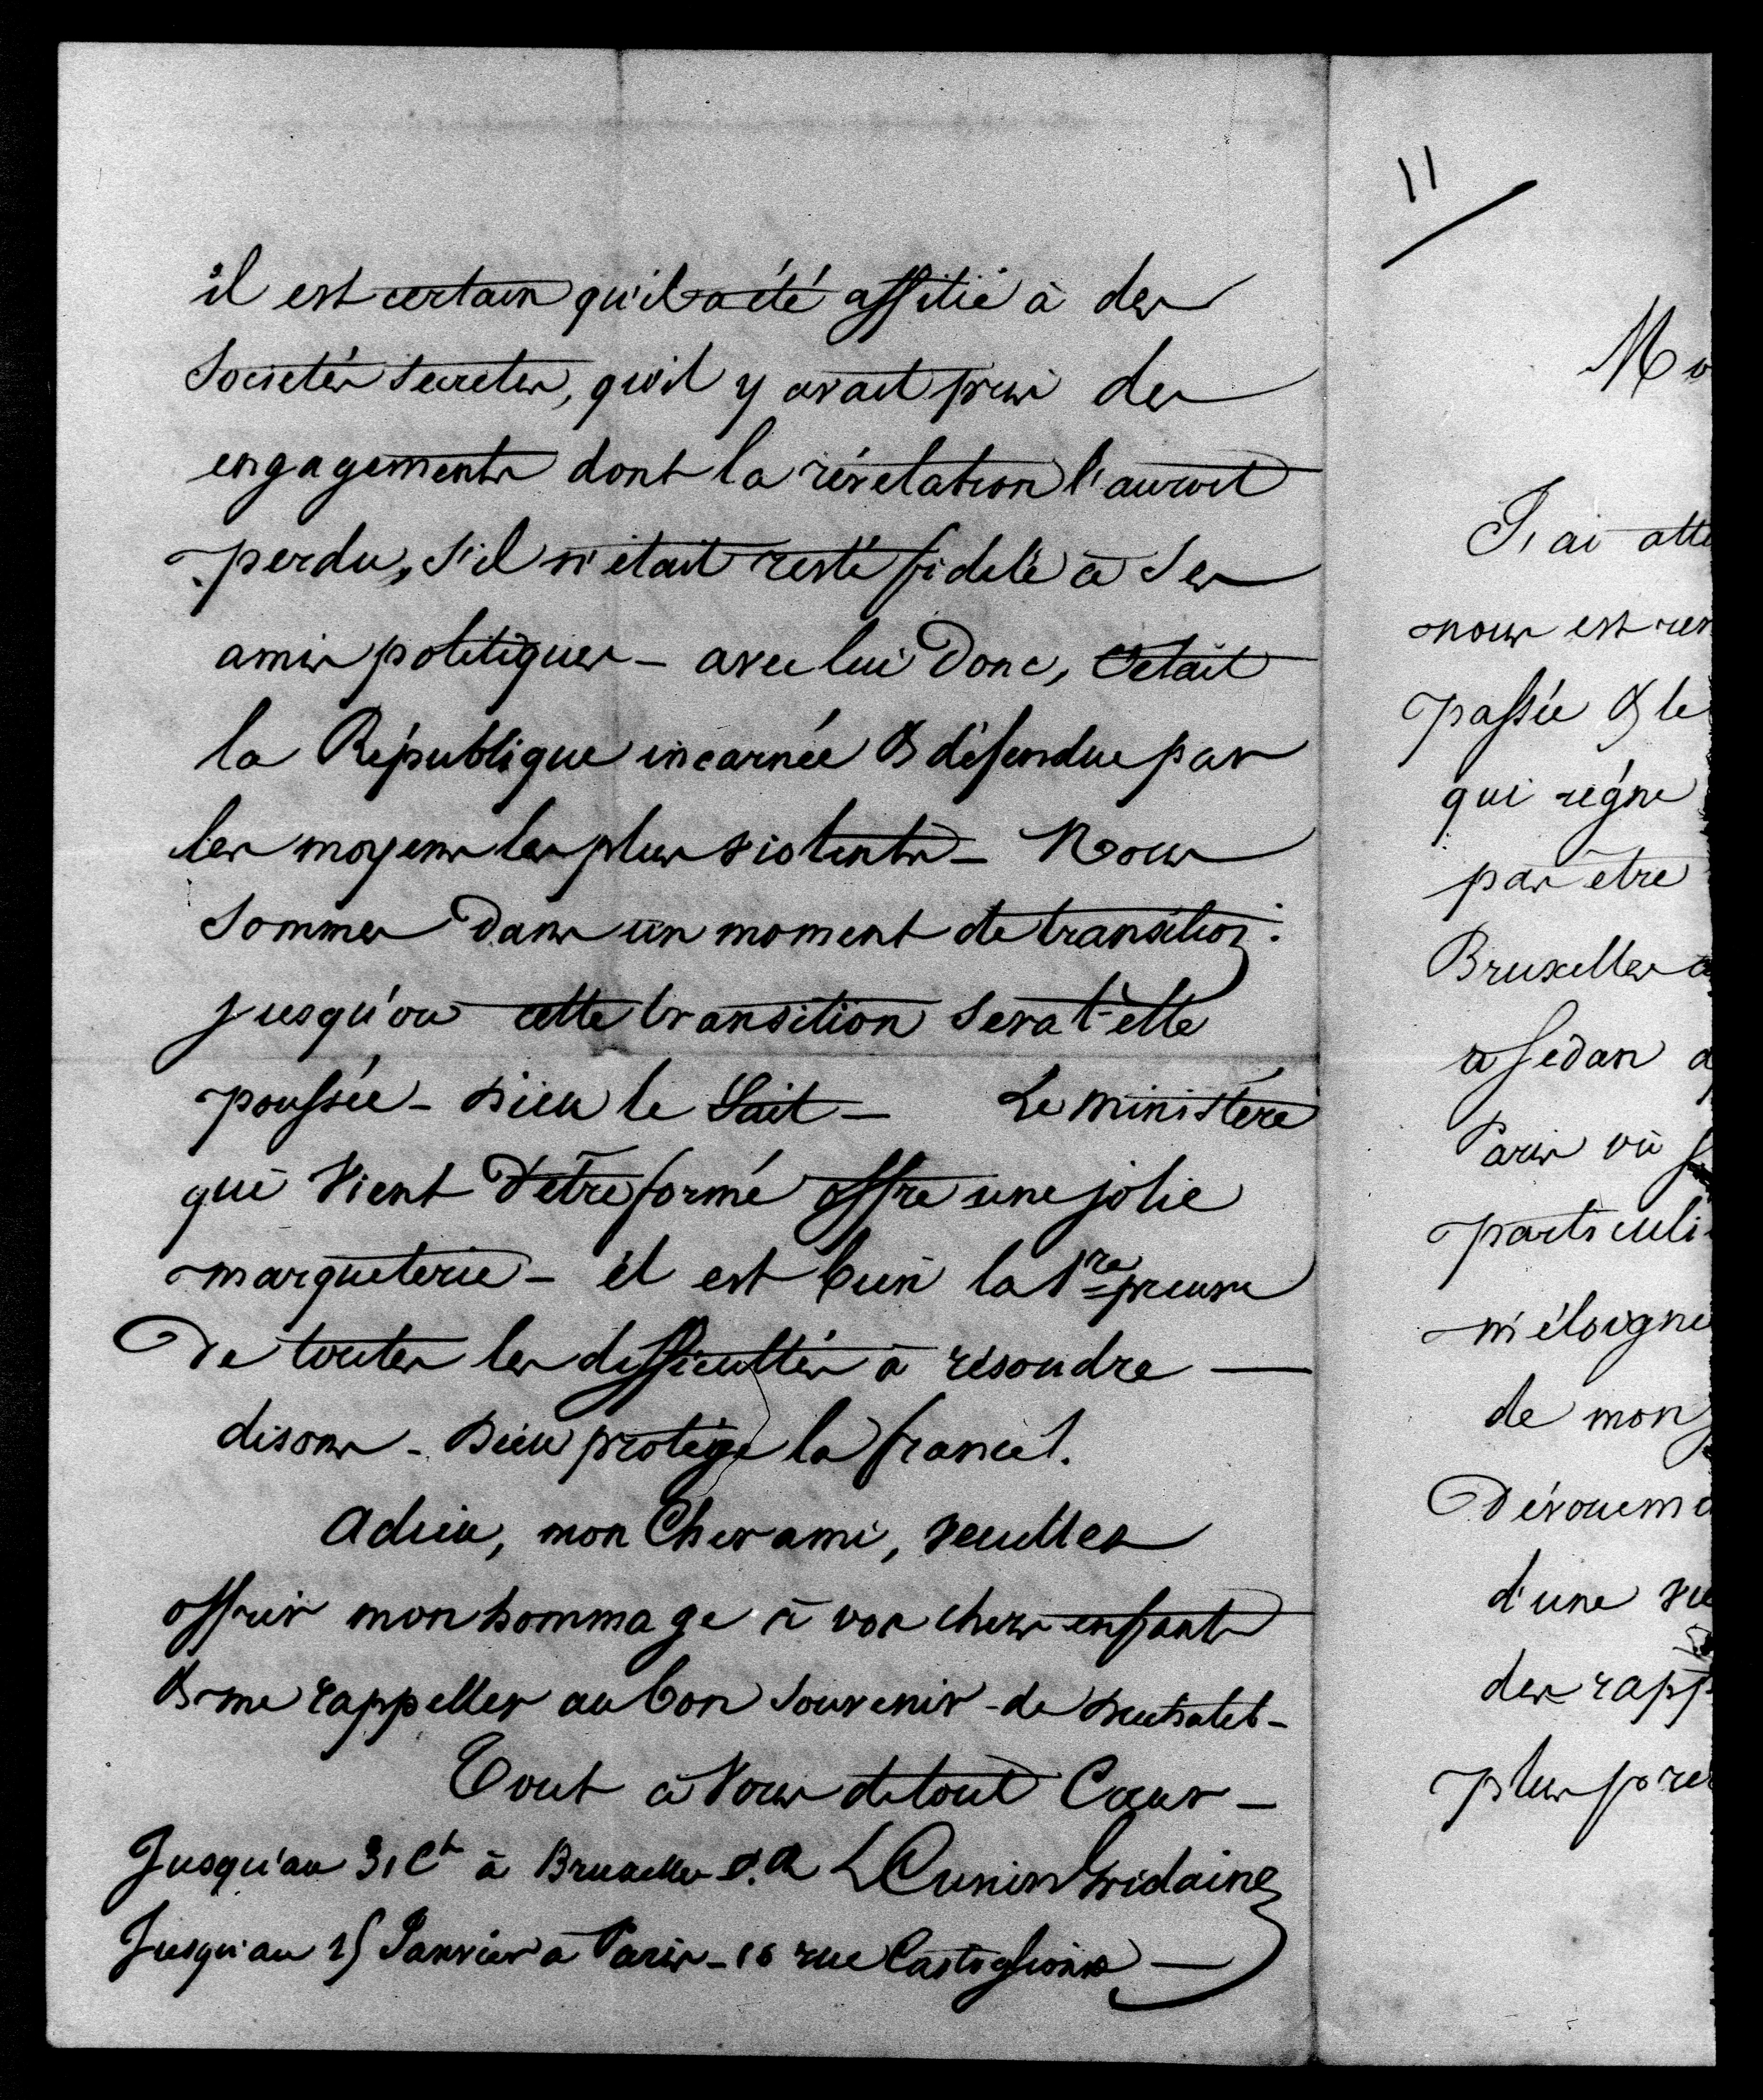 il est certain qu'il a été affilié à des
Sociétés Secretes, qu'il y avait pris des
engagements dont la révélation l'auroit
perdu, s'il n'était resté fidele à Ses
amis politiques - avec lui Donc, C'etait
la République incarnée & défendue par
les moyens les plus violents - Nous
Sommes Dans un moment de transition.
jusqu'ou cette transition Sera t-elle
poussée - Dieu le Sait - Le ministère
qui Vient D'être formé offre une jolie
marqueterie - il est bien la 1re preuve
De toutes les difficultés à résoudre -
disons - Dieu protège la france !.
Adieu, mon Cher ami, veuillez
offrir mon hommage à vos chers enfants
& me rappeller au bon Souvenir de
Tout à Vous de tout Cœur -
Jusqu'au 31 Ct à Bruxelles P.R LCunin Gridaine
Jusqu'au 15 Janvier à Paris - 16 rue Castiglione -
11
Mo
J'ai atte
nous est res
passée & le
qui régne
par être
Bruxelles a
a Sedan a
Paris où
particuli
m'éloigne
de mon
Dévouem
d'une
des rapp
plus